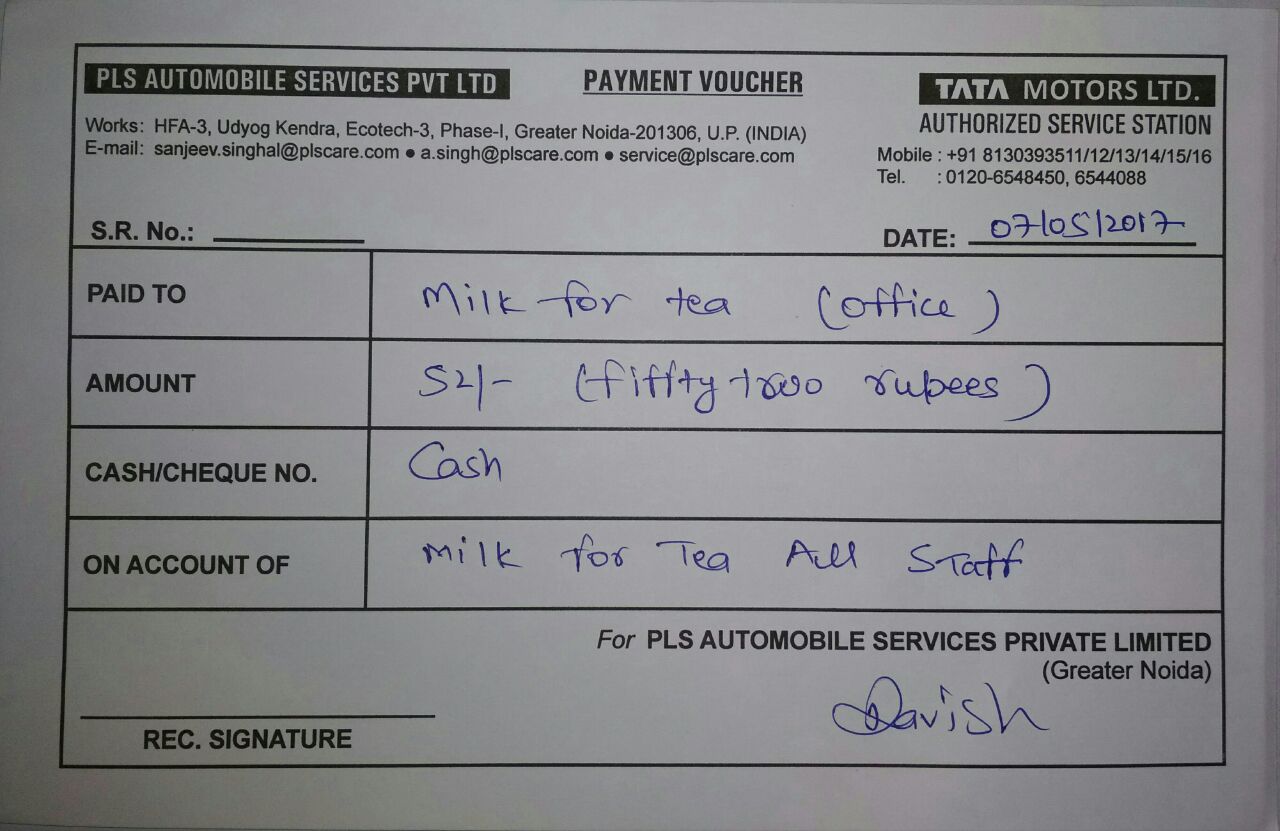 PLS AUTOMOBILE SERVICES PVT LTD PAYMENT VOUCHER TATA MOTORS LTD.
AUTHORIZED SERVICE STATION
Works: HFA-3, Udyog Kendra, Ecotech-3, Phase-I, Greater Noida-201306, U.P. (INDIA)
E-mail: sanjeev.singhal@plscare.com • a.singh@plscare.com • service@plscare.com
Mobile : +91 8130393511/12/13/14/15/16
Tel. : 0120-6548450, 6544088
S.R. No.: DATE: 07/05/2017
PAID TO Milk for tea (office)
AMOUNT 52/- (fiffty two rupees)
CASH/CHEQUE NO. Cash
ON ACCOUNT OF Milk for Tea All Staff
For PLS AUTOMOBILE SERVICES PRIVATE LIMITED
(Greater Noida)
REC. SIGNATURE